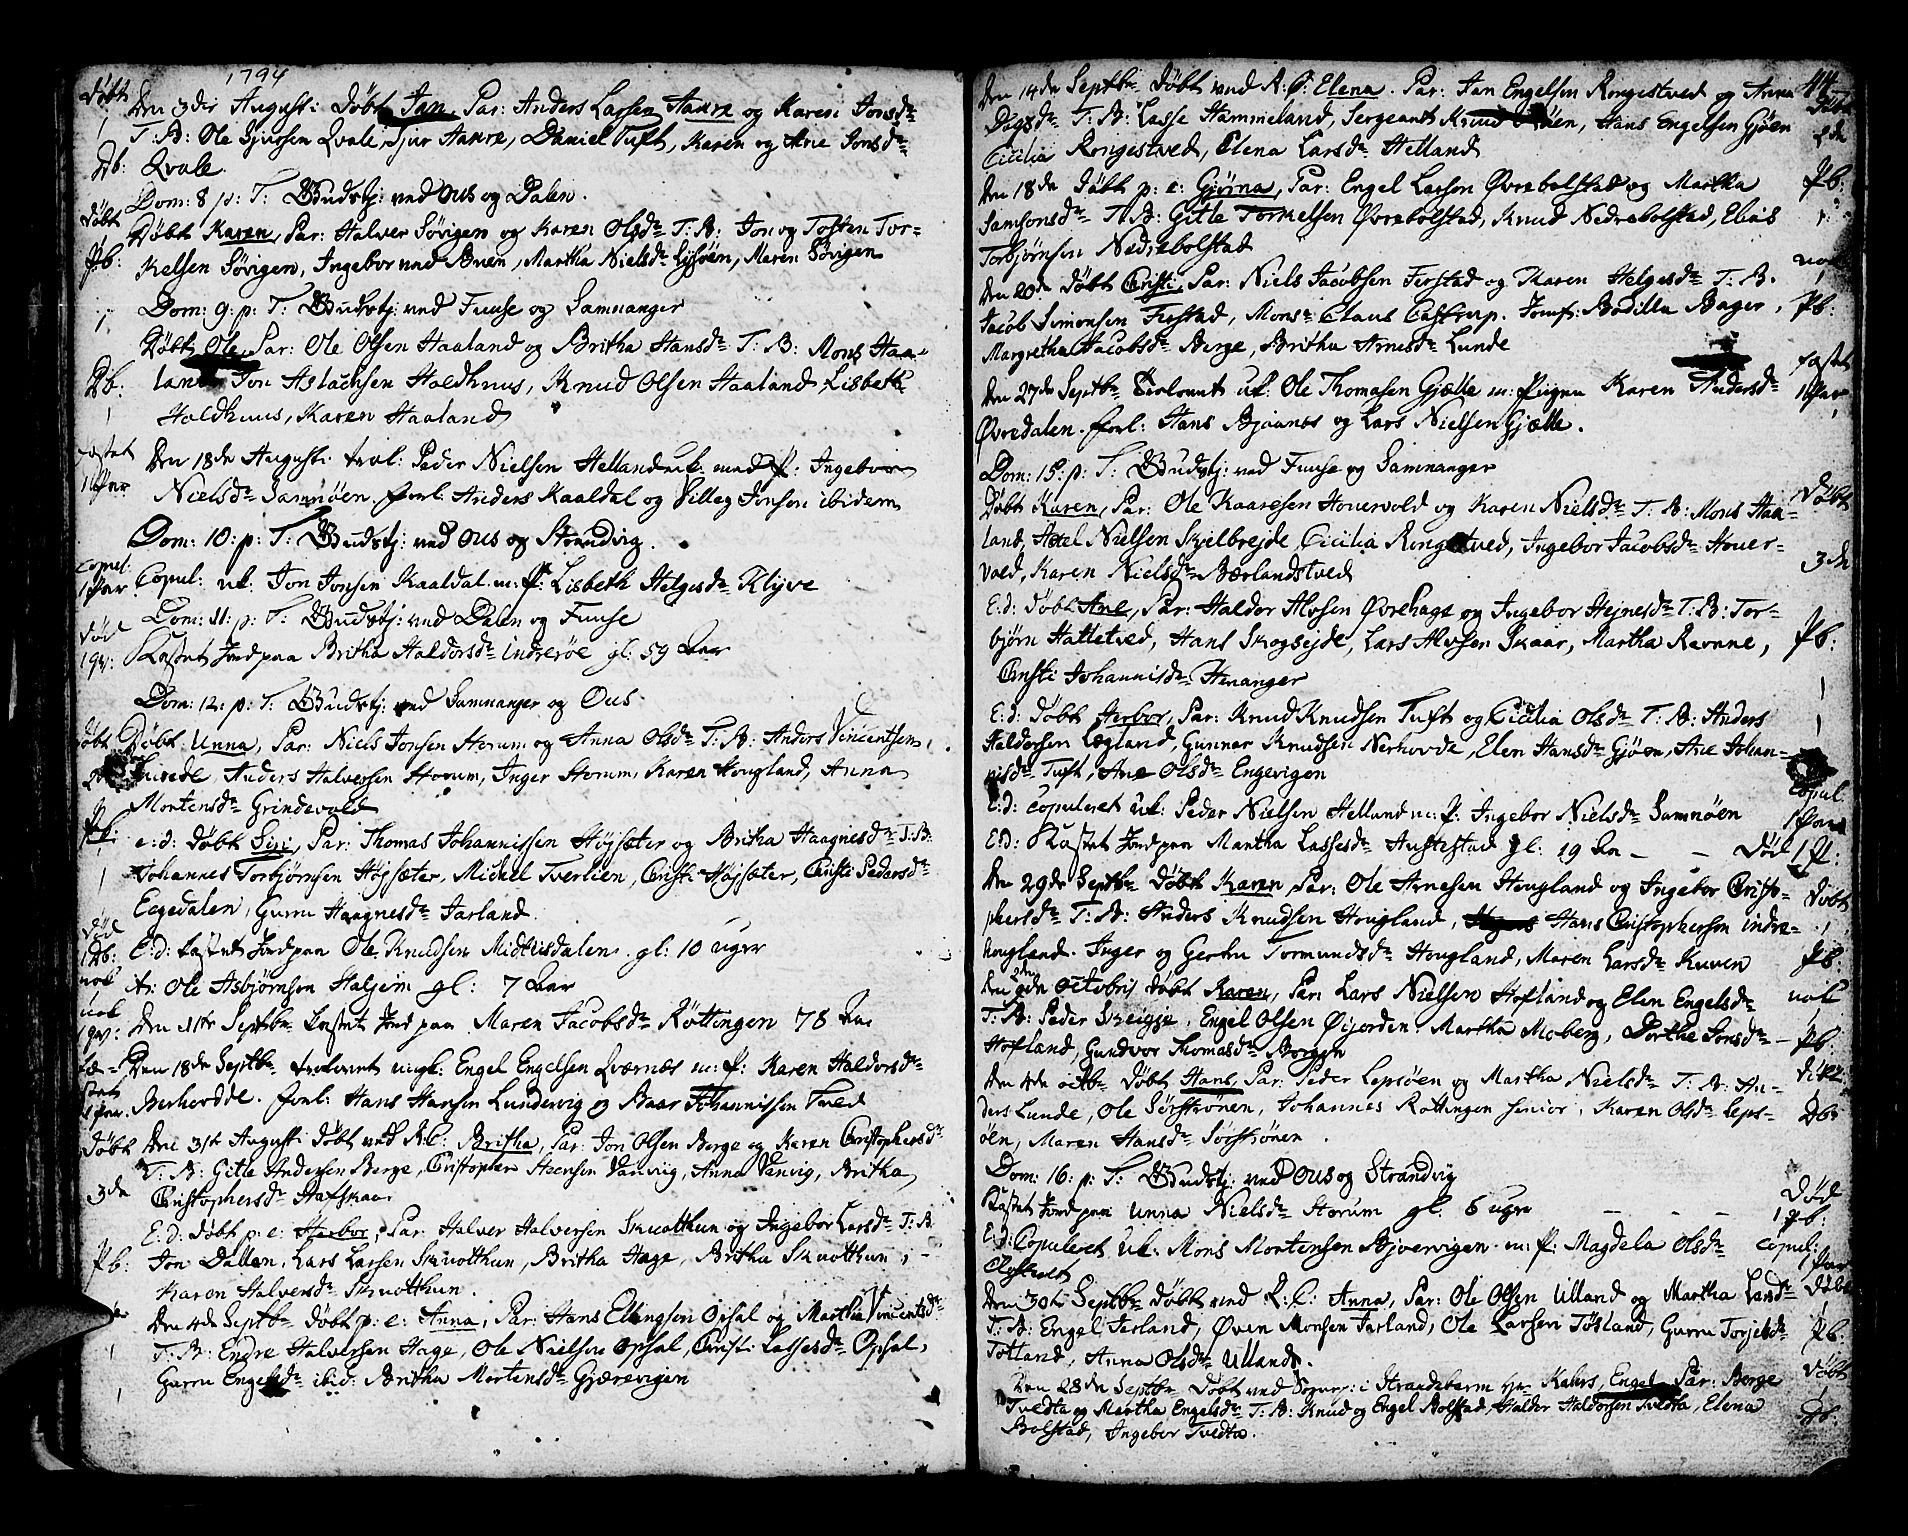 1794
Døbt Den 3die Augusti Døbt Jan, Par: Anders Larsen Haure og Karen Jonsd:
T: B: Ole Sjursen Qvale, Sjur Haure, Daniel Tuft, Karen og Ane Jonsd:
Db: Qvale.
Dom: 8 p: T: Gudstj: ved Ous og Dalen.
Døbt Døbt Karen, Par: Halver Søvigen og Karen Olsd: T: B: Jon og Tosten Tor-
Pb: kelsen Søvigen, Ingebor ved Aaen, Martha Nielsd: Gjøen, Maren Søvigen
Dom: 9: p: T: Gudstj: ved Fuuse og Samnanger
Døbt Ole, Par: Ole Olsen Haaland og Britha Hansd: T: B: Mons Haa-
Db: land Jon Aslachsen Holdhuus, Knud Olsen Haaland, Lisbeth
Holdhuus, Karen Haaland
fæstet Den 18de Augusti trol: Peder Nielsen Helland uk: med P: Ingebor
1 Par Nielsd: Samnøen. forl: Anders Kaaldal og Villeg Jonsen ibidem
Dom: 10: p: T. Gudstj: ved Ous og Strandvig.
copul:
1 Par Copul: uk: Jon Jonsen Kaaldal m: P: Lisbeth Helgesd: Klyve
Dom: 11: p: T. Gudstj: ved Dalen og Fuuse
død
1 qv: Kastet Jord paa Britha Haldorsd: indrerøe gl: 59 Aar
Dom: 12: p: T. Gudstj: ved Samnanger og Ous
døbt Døbt Unna, Par: Niels Jonsen Storum og Anna Olsd: T: B: Anders Vincentsen
Anders Halversen Storum, Inger Storum, Karen Hougland, Anna
Mortensd: Grindevold
Pb: e: d: døbt Siri, Par: Thomas Johannissen Højsæter og Britha Haagnesd: T: B:
Johannes Torbjørnsen Højsæter, Michel Tverlien, Christi Højsæter, Christi Pedersd:
Eegedalen, Guru Haagnesd: Jarland
død
1 Db: E: d: kastet Jord paa Ole Knudsen Midtvisdalen gl: 10 uger
nok it: Ole Asbjørnsen Haljem gl: 7 Aar
nok
1 qv: Den 11te Septbr: kastet Jord paa Maren Jacobsd: Røttingen 78 Aar
fæ- Den 18de Septbr: trolovet ungk: Engel Engelsen Qværnes m: P: Karen Haldorsd:
stet
1 Par. Berhovdde. forl: Hans Hansen Lundervig og Baar Johannissen Tved
Døbt Den 31te Augusti døbt ved R: C: Britha, Par: Jon Olsen Berge og Karen Christophersd:
T: B: Gitle Andersen Berge, Christopher Steensen Vanvig, Anna Vanvig, Britha
3de Christophersd: Hafskaar
E: d: døbt p: e: Herbor, Par: Halver Halversen Skuotthun og Ingebor Larsd: T: B:
Pb: Jon Dallen, Lars Larsen Skuotthun, Britha Hage, Britha Skuotthun,
Karen Halversd: Skuotthun.
Den 4de Septbr: døbt p: e: Anna, Par: Hans Ellingsen Opsal og Martha Vincentsd:
T: B: Endre Halversen Hage, Ole Nielsen Opsal, Christi Lassesd: Opsal,
Guru Engelsd: ibid: Britha Mortensd: Gjærevigen
Den 14de Septbr: Døbt ved R: Ø: Elena. Par: Jan Engelsen Rongestved og Anna
Dagsd: T: B: Lasse Hammeland, Sergeant Knud Røen, Hans Engelsen Gjøen
Cicilia Rongestved, Elena Larsd: Helland
Den 18de døbt p: e: Gjørna, Par: Engel Larsen Øvrebolstad og Martha Pb:
Samsonsd: T: B: Gitle Tormelsen Øvrebolstad, Knud Nedrebolstad, Elias
Torbjørnsen Nedrebolstad
Den 20de døbt Christi, Par: Niels Jacobsen Firstad og Maren Helgesd: T: B:
Jacob Simonsen Firstad, Mons: Claus Castrup. Jomf: Bodilla Bager, Pb:
Margretha Jacobsd: Berge, Britha Arnesd: Lunde
fæstet
Den 27de Septbr: Trolovet uk: Ole Thomasen Gjelle m: Pigen Karen Andersd: 1 Par
Øvredalen. forl: Hans Bjaanes og Lars Nielsen Gjelle.
Dom: 15: p: T: Gudstj: ved Fuuse og Samnanger
Døbt Karen, Par: Ole Kaaresen Houervold og Karen Nielsd: T: B: Mons Haa- Døbt
land, Axel Nielsen Skjelbrejde, Cicilia Rongestved, Ingebor Jacobsd: Houer-
vold, Karen Nielsd: Bærlandstved 3de
E: d: døbt Ane, Par: Haldor Alvsen Øvrehage og Ingebor Hejnesd: T: B: Tor-
bjørn Hattetved, Hans Skogsejde, Lars Alvsen Skaar, Martha Revnne, Pb:
Christi Johannisd: Henanger
E: d: døbt Herbor, Par: Knud Knudsen Tuft og Cicilia Olsd: T: B: Anders
Haldorsen Lægland, Gunnar Knudsen Nerhovde, Elen Hansd: Gjøen, Ane Johan-
nisd: Tuft, Ane Olsd: Engevigen
E: d: Copuleret uk: Peder Nielsen Helland m: P: Ingebor Nielsd: Samnøen Copul: 1 Par
E: d: Kastet Jord paa Martha Lassesd: Austestad gl: 19 Aar – – Død 1 P:
Den 29de Septbr: Døbt Karen, Par: Ole Arnesen Hougland og Ingebor Christo- døbt
phersd: T: B: Anders Knudsen Hougland, Hans Christophersen indre-
hougland. Inger og Gertru Tormundsd: Hougland, Maren Larsd: Kuven Pb:
Den 2den Octobris døbt Karen, Par: Lars Nielsen Hofland og Elen Engelsd: nok
T: B: Peder Skeigje, Engel Olsen Øijorden, Martha Moberg, Dorthe Jonsd: – Pb:
Hofland, Gundvor Thomasd: Borgen
Den 4de octbr: døbt Hans, Par: Peder Lepsøen og Martha Nielsd: T: B: An-
ders Lunde, Ole Sørstrønen, Johannes Røttingen senior, Karen Olsd: Leps- Db:
øen, Maren Hansd: Sørstrønen.
Dom: 16: p: T: Gudstj: ved Ous og Strandvig
Kastet Jord paa Unna Nielsd: Storum gl. 6 uger – – – Død 1 pb:
E: d: Copuleret uk: Mons Mortensen Bjørvevigen m: P: Magdela Olsd: copul: 1 Par
Den 30te Septbr: døbt ved R: C: Anna, Par: Ole Olsen Ulland og Martha Larsd: Døbt
T: B: Engel Jarland, Øven Monsen Jarland, Ole Larsen Tøsland, Guru Torjelsd: Pb:
Totland, Anna Olsd: Ulland.
Den 28de Septbr: Døbt ved Sogupr: i Strandebarm Hr: Kahrs, Engel Par: Børge Døbt
Tvedta og Martha Engelsd: T: B: Knud og Engel Bolstad, Halder Haldorsen Tvedta, Elena Db:
Bolstad, Ingebor Tvedta.